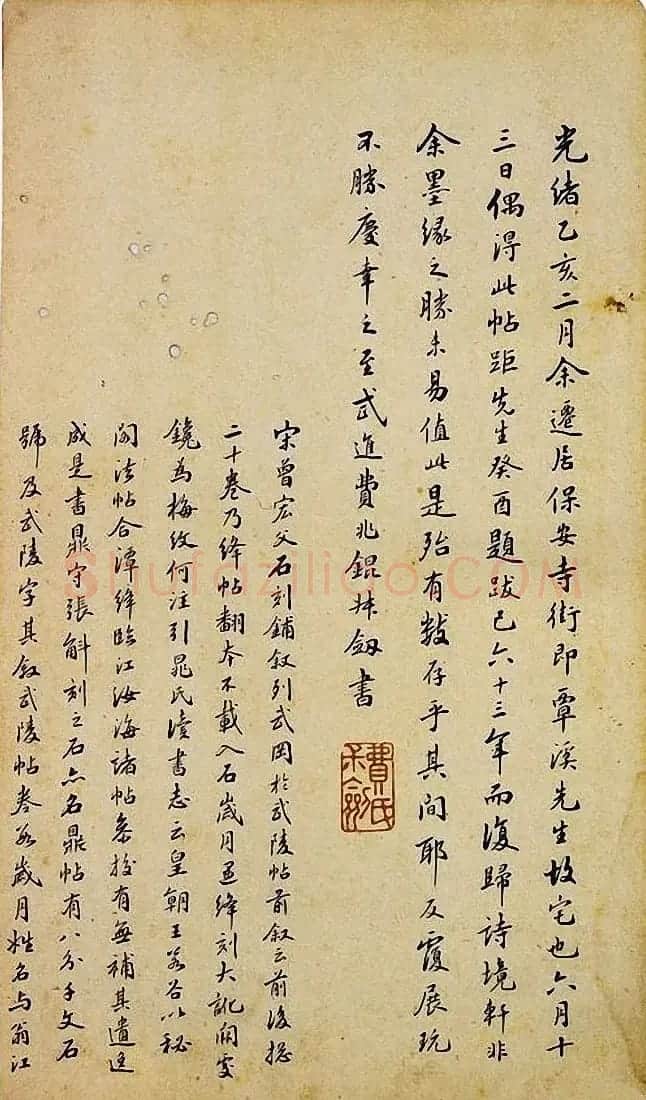 光緒乙亥二月余遷居保安寺街即覃溪先生故宅也六月十
三日偶淂此帖距先生癸酉題跋已六十三年而復歸詩境軒非
余墨緣之勝未易值此是殆有數存乎其間耶反覆展玩
不勝慶幸之至武進費兆錕 劔書
費氏
宋曾宏父石刻鋪敘列武岡於武陵帖前敘云前後揔
二十卷乃絳帖翻本不載入石歲月 絳刻大訛闕
鐫為梅紋何注引晁氏讀書志云皇朝王若谷以秘
閣法帖合潭絳臨江汝海諸帖參校有無補其遺逸
成是書鼎守張斛刻之石亦名鼎帖有八分千文石
號及武陵字其敘武陵帖卷 歲月姓名与翁江
Shufaziliao.COM